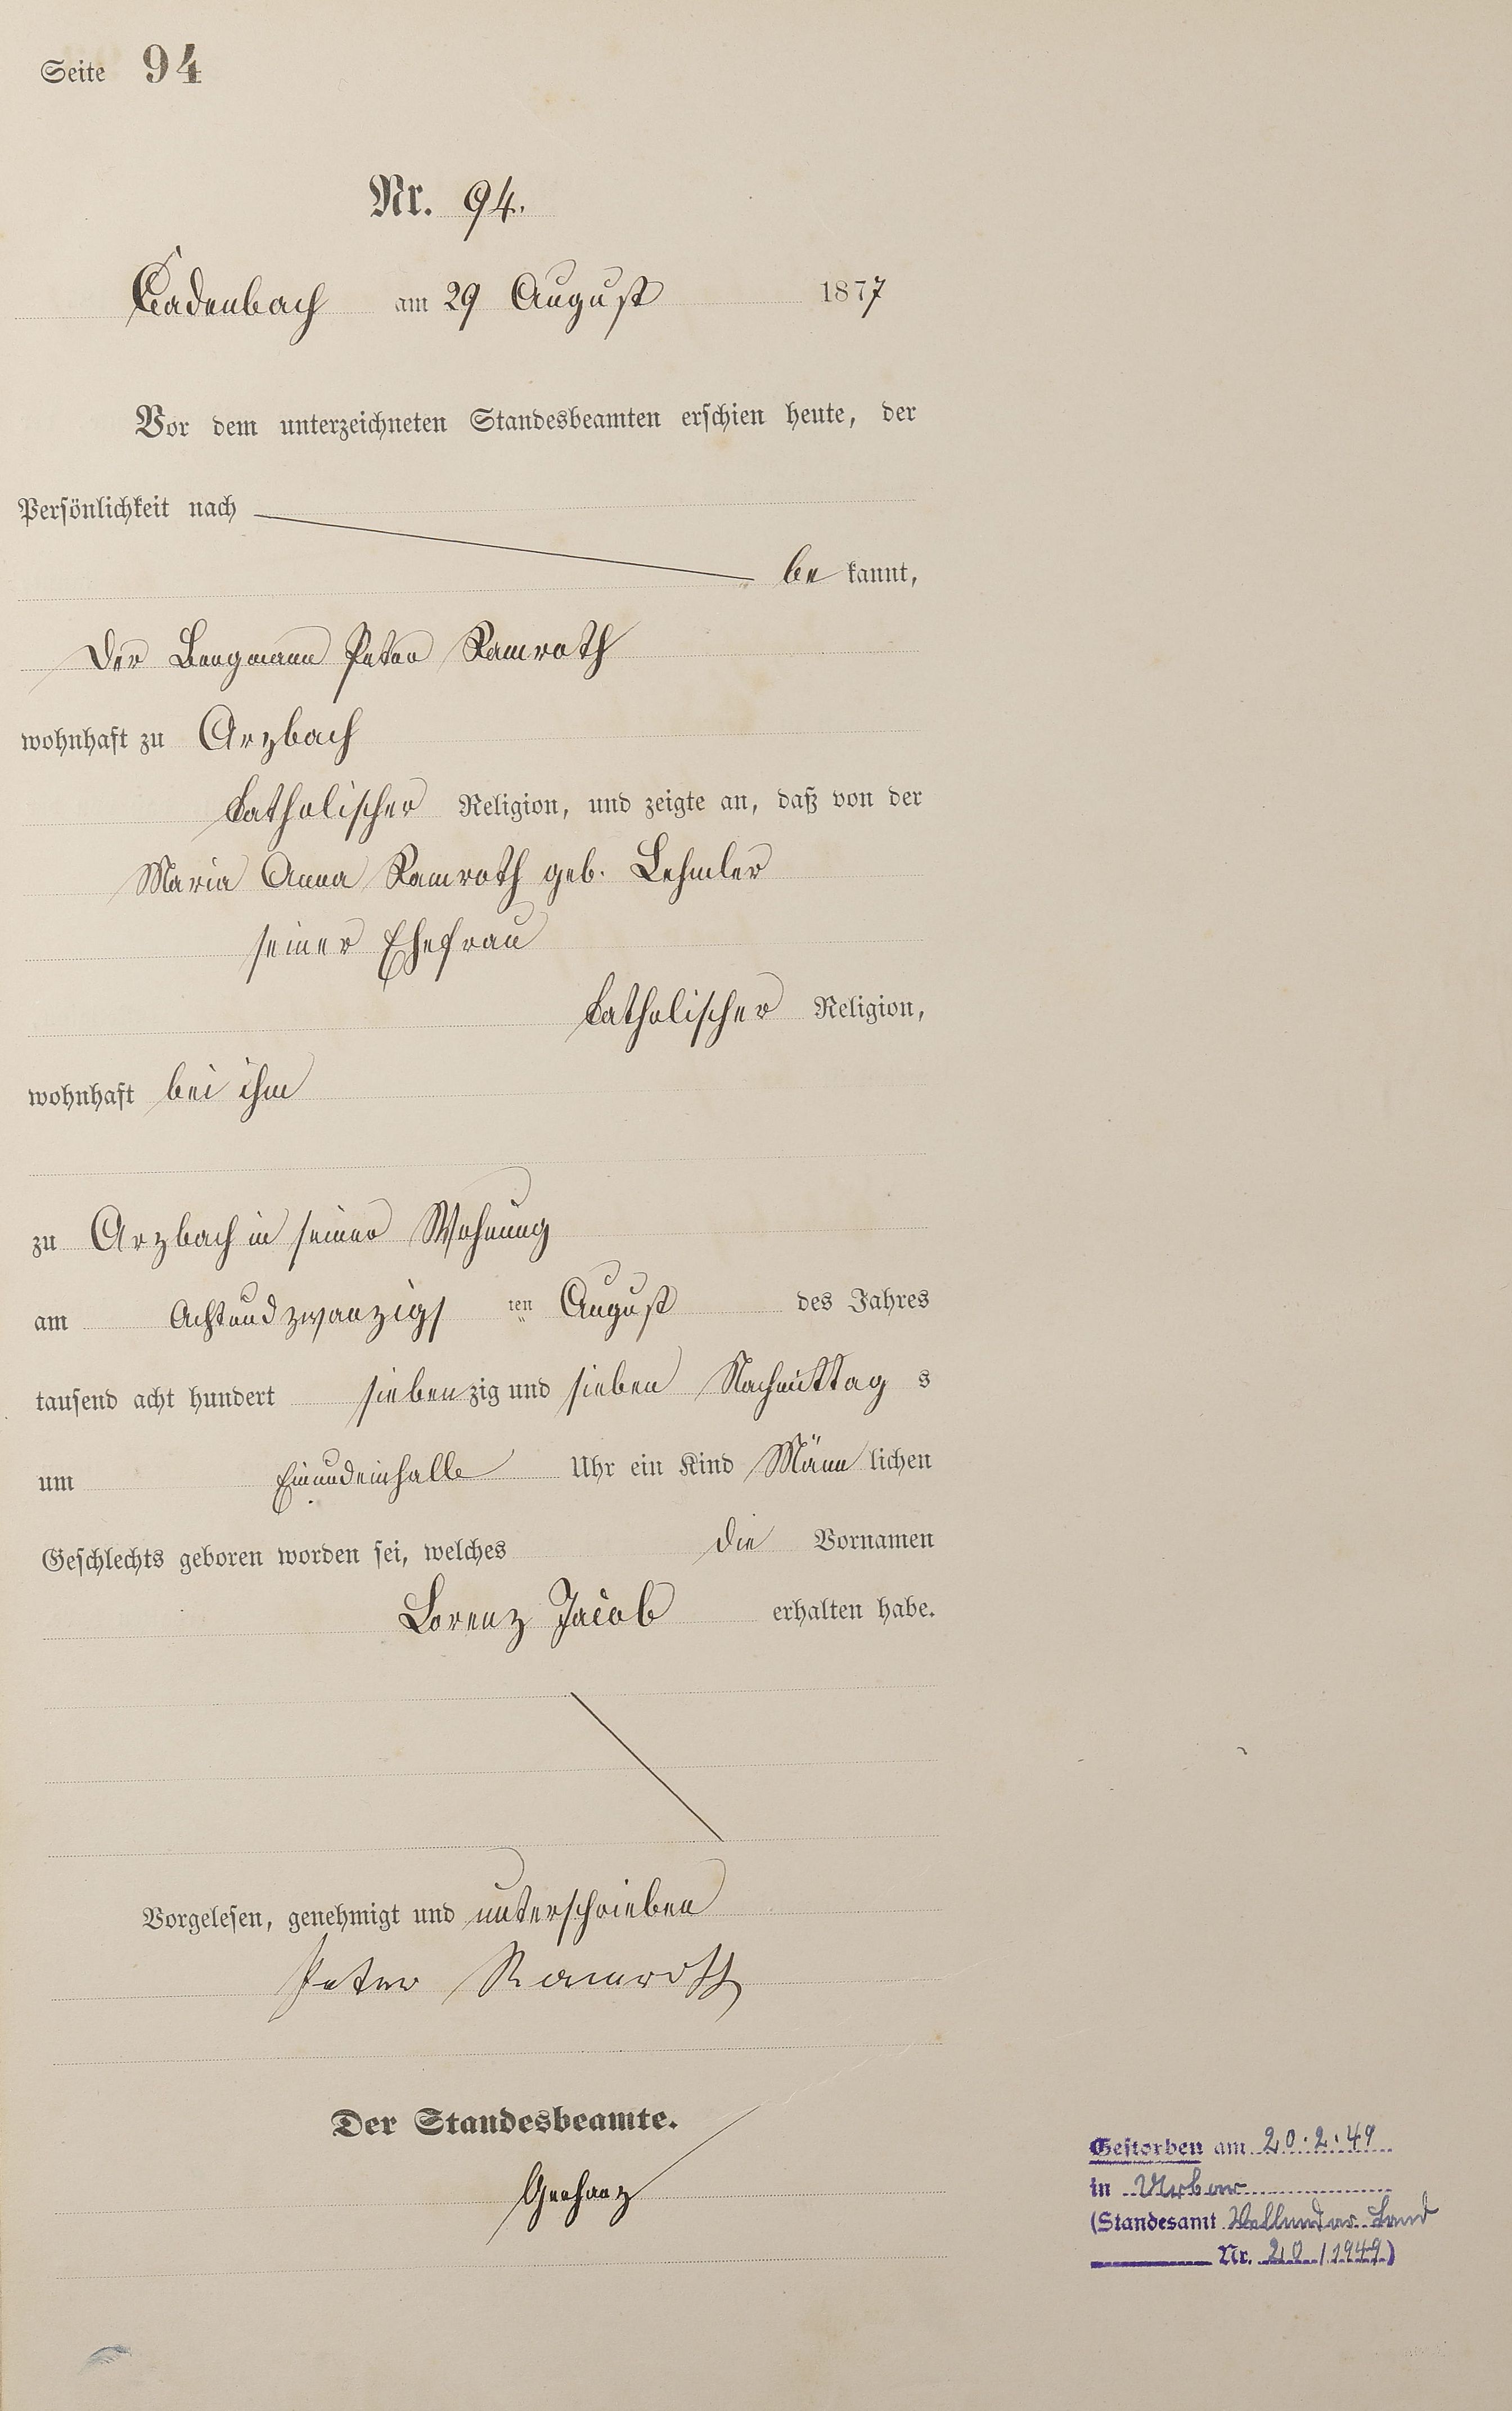 Seite 94
Nr. 94.
Cadenbach am 29 August 1877
Vor dem unterzeichneten Standesbeamten erschien heute, der
Persönlichkeit nach
be kannt,
der Bergmann Peter Ramroth
wohnhaft zu Arzbach
katholischer Religion, und zeigte an, daß von der
Maria Anna Ramroth geb. Lehmler
seiner Ehefrau
katholischer Religion,
wohnhaft bei ihm
zu Arzbach in seiner Wohnung
am Achtundzwanzigs ten August des Jahres
tausend acht hundert siebenzig und sieben Nachmittag s
um Einundeinhalb Uhr ein Kind Männ lichen
Geschlechts geboren worden sei, welches die Vornamen
Lorenz Jacob erhalten habe.
Vorgelesen, genehmigt und unterschrieben
Peter Ramroth
Der Standesbeamte.
Gestorben am 20.2.49
in Urbar
(Standesamt Vallendar Land
Nr. 20 / 1949)